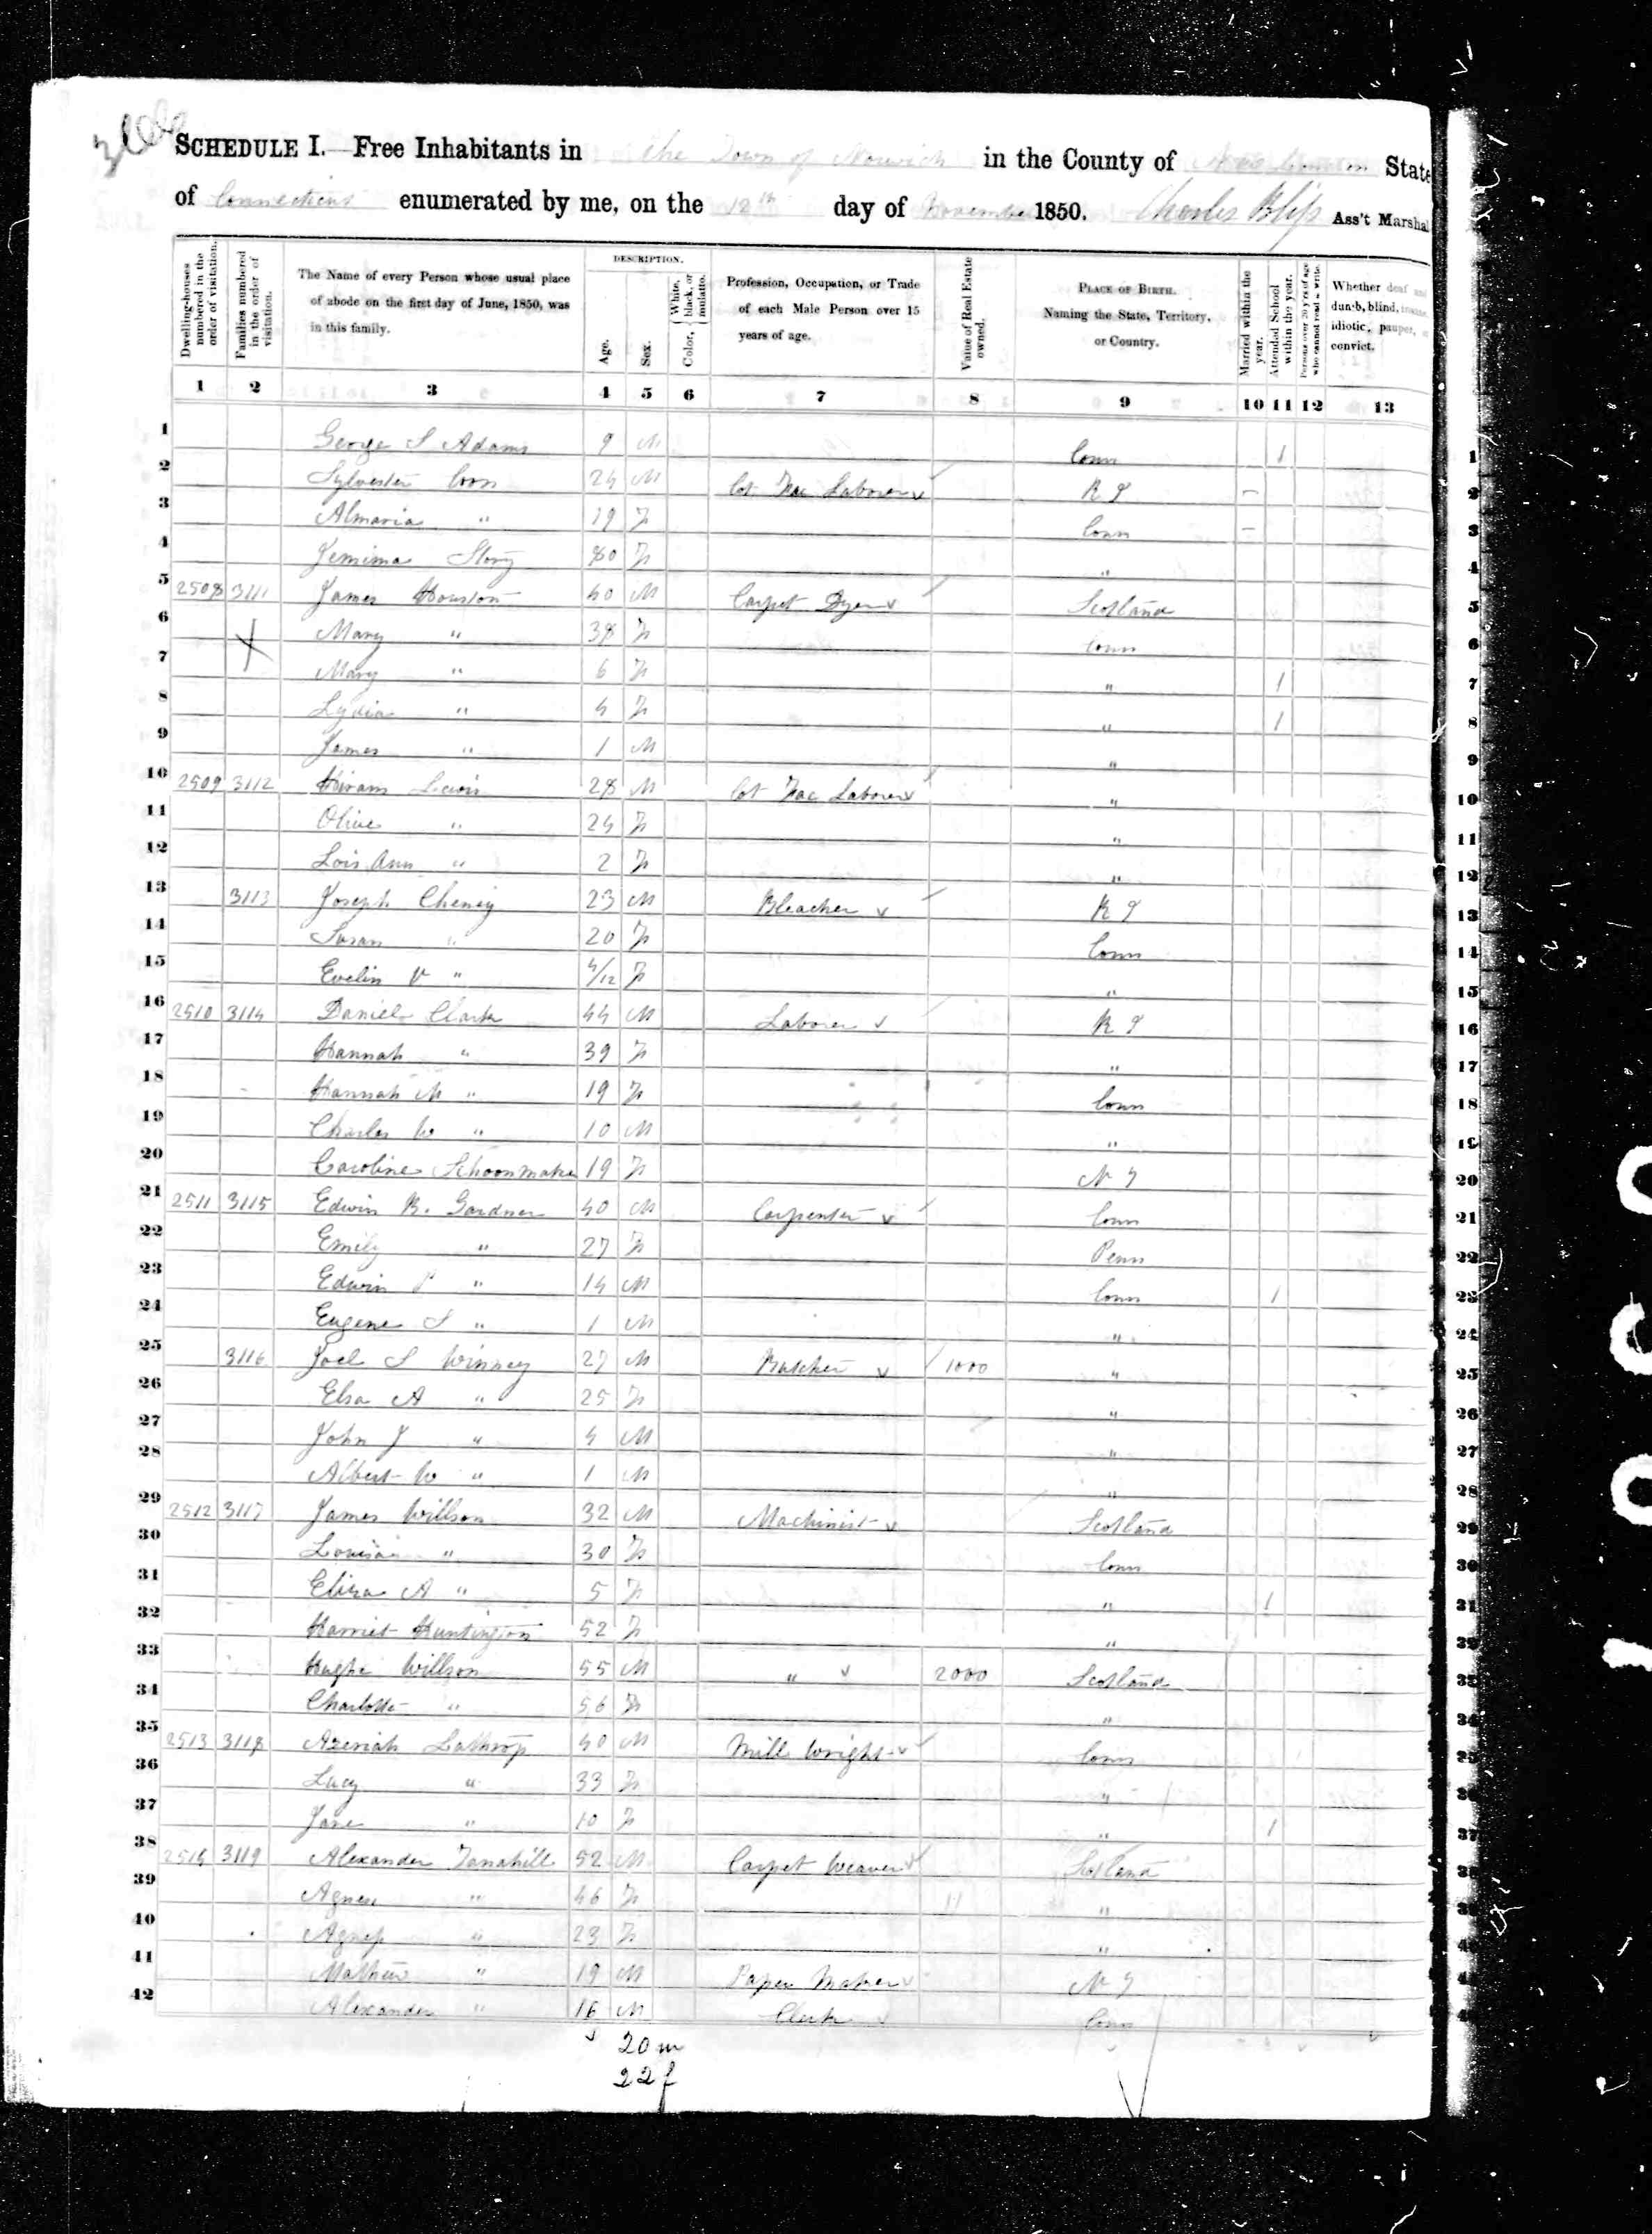 SCHEDULE I.—Free Inhabitants in the Town of Norwich in the County of New London State
of Connecticut enumerated by me, on the 12th day of November 1850. Charles Bliss Ass't Marshal
DESCRIPTION.
Dwelling-houses numbered in the order of visitation. Families numbered in the order of visitation. The Name of every Person whose usual place of abode on the first day of June, 1850, was in this family. Age. Sex. Color, { White, black, or mulatto. Profession, Occupation, or Trade of each Male Person over 15 years of age. Value of Real Estate owned. PLACE OF BIRTH. Naming the State, Territory, or Country. Married within the year. Attended School within the year. Persons over 20 y'rs of age who cannot read & write. Whether deaf and dumb, blind, insane, idiotic, pauper, or convict.
1 2 3 4 5 6 7 8 9 10 11 12 13
1 George S Adams 9 M Conn 1 1
2 Sylvester Coon 24 M Cot Fac Laborer R I – 2
3 Almaria " 19 F Conn – 3
4 Jemima Story 80 F " 4
5 2508 3111 James Houston 40 M Carpet Dyer Scotland 5
6 Mary " 38 F Conn 6
7 Mary " 6 F " 1 7
8 Lydia " 4 F " 1 8
9 James " 1 M " 9
10 2509 3112 Hiram Lewis 28 M Cot Fac Laborer " 10
11 Olive " 24 F " 11
12 Lois Ann " 2 F " 12
13 3113 Joseph Cheney 23 M Bleacher R I 13
14 Susan " 20 F Conn 14
15 Evelin V " 4/12 F " 15
16 2510 3114 Daniel Clark 44 M Laborer R I 16
17 Hannah " 39 F " 17
18 Hannah M " 19 F Conn 18
19 Charles W " 10 M " 19
20 Caroline Schoonmaker 19 F N Y 20
21 2511 3115 Edwin B. Gardner 40 M Carpenter Conn 21
22 Emily " 27 F Penn 22
23 Edwin P " 14 M Conn 1 23
24 Eugene S " 1 M " 24
25 3116 Joel S Winney 27 M Butcher 1000 " 25
26 Elsa A " 25 F " 26
27 John J " 4 M " 27
28 Albert W " 1 M " 28
29 2512 3117 James Willson 32 M Machinist Scotland 29
30 Louisa " 30 F Conn 30
31 Eliza A " 5 F " 1 31
32 Harriet Huntington 52 F " 32
33 Hughe Willson 55 M " 2000 Scotland 33
34 Charlotte " 56 F " 34
35 2513 3118 Azeriah Lathrop 40 M Mill Wright Conn 35
36 Lucy " 33 F " 36
37 Jane " 10 F " 1 37
38 2514 3119 Alexander Tanahill 52 M Carpet Weaver Scotland 38
39 Agness " 46 F " 39
40 Agness " 23 F " 40
41 Mathew " 19 M Paper Maker N Y 41
42 Alexander " 16 M Clerk Conn 42
20 m
22 f